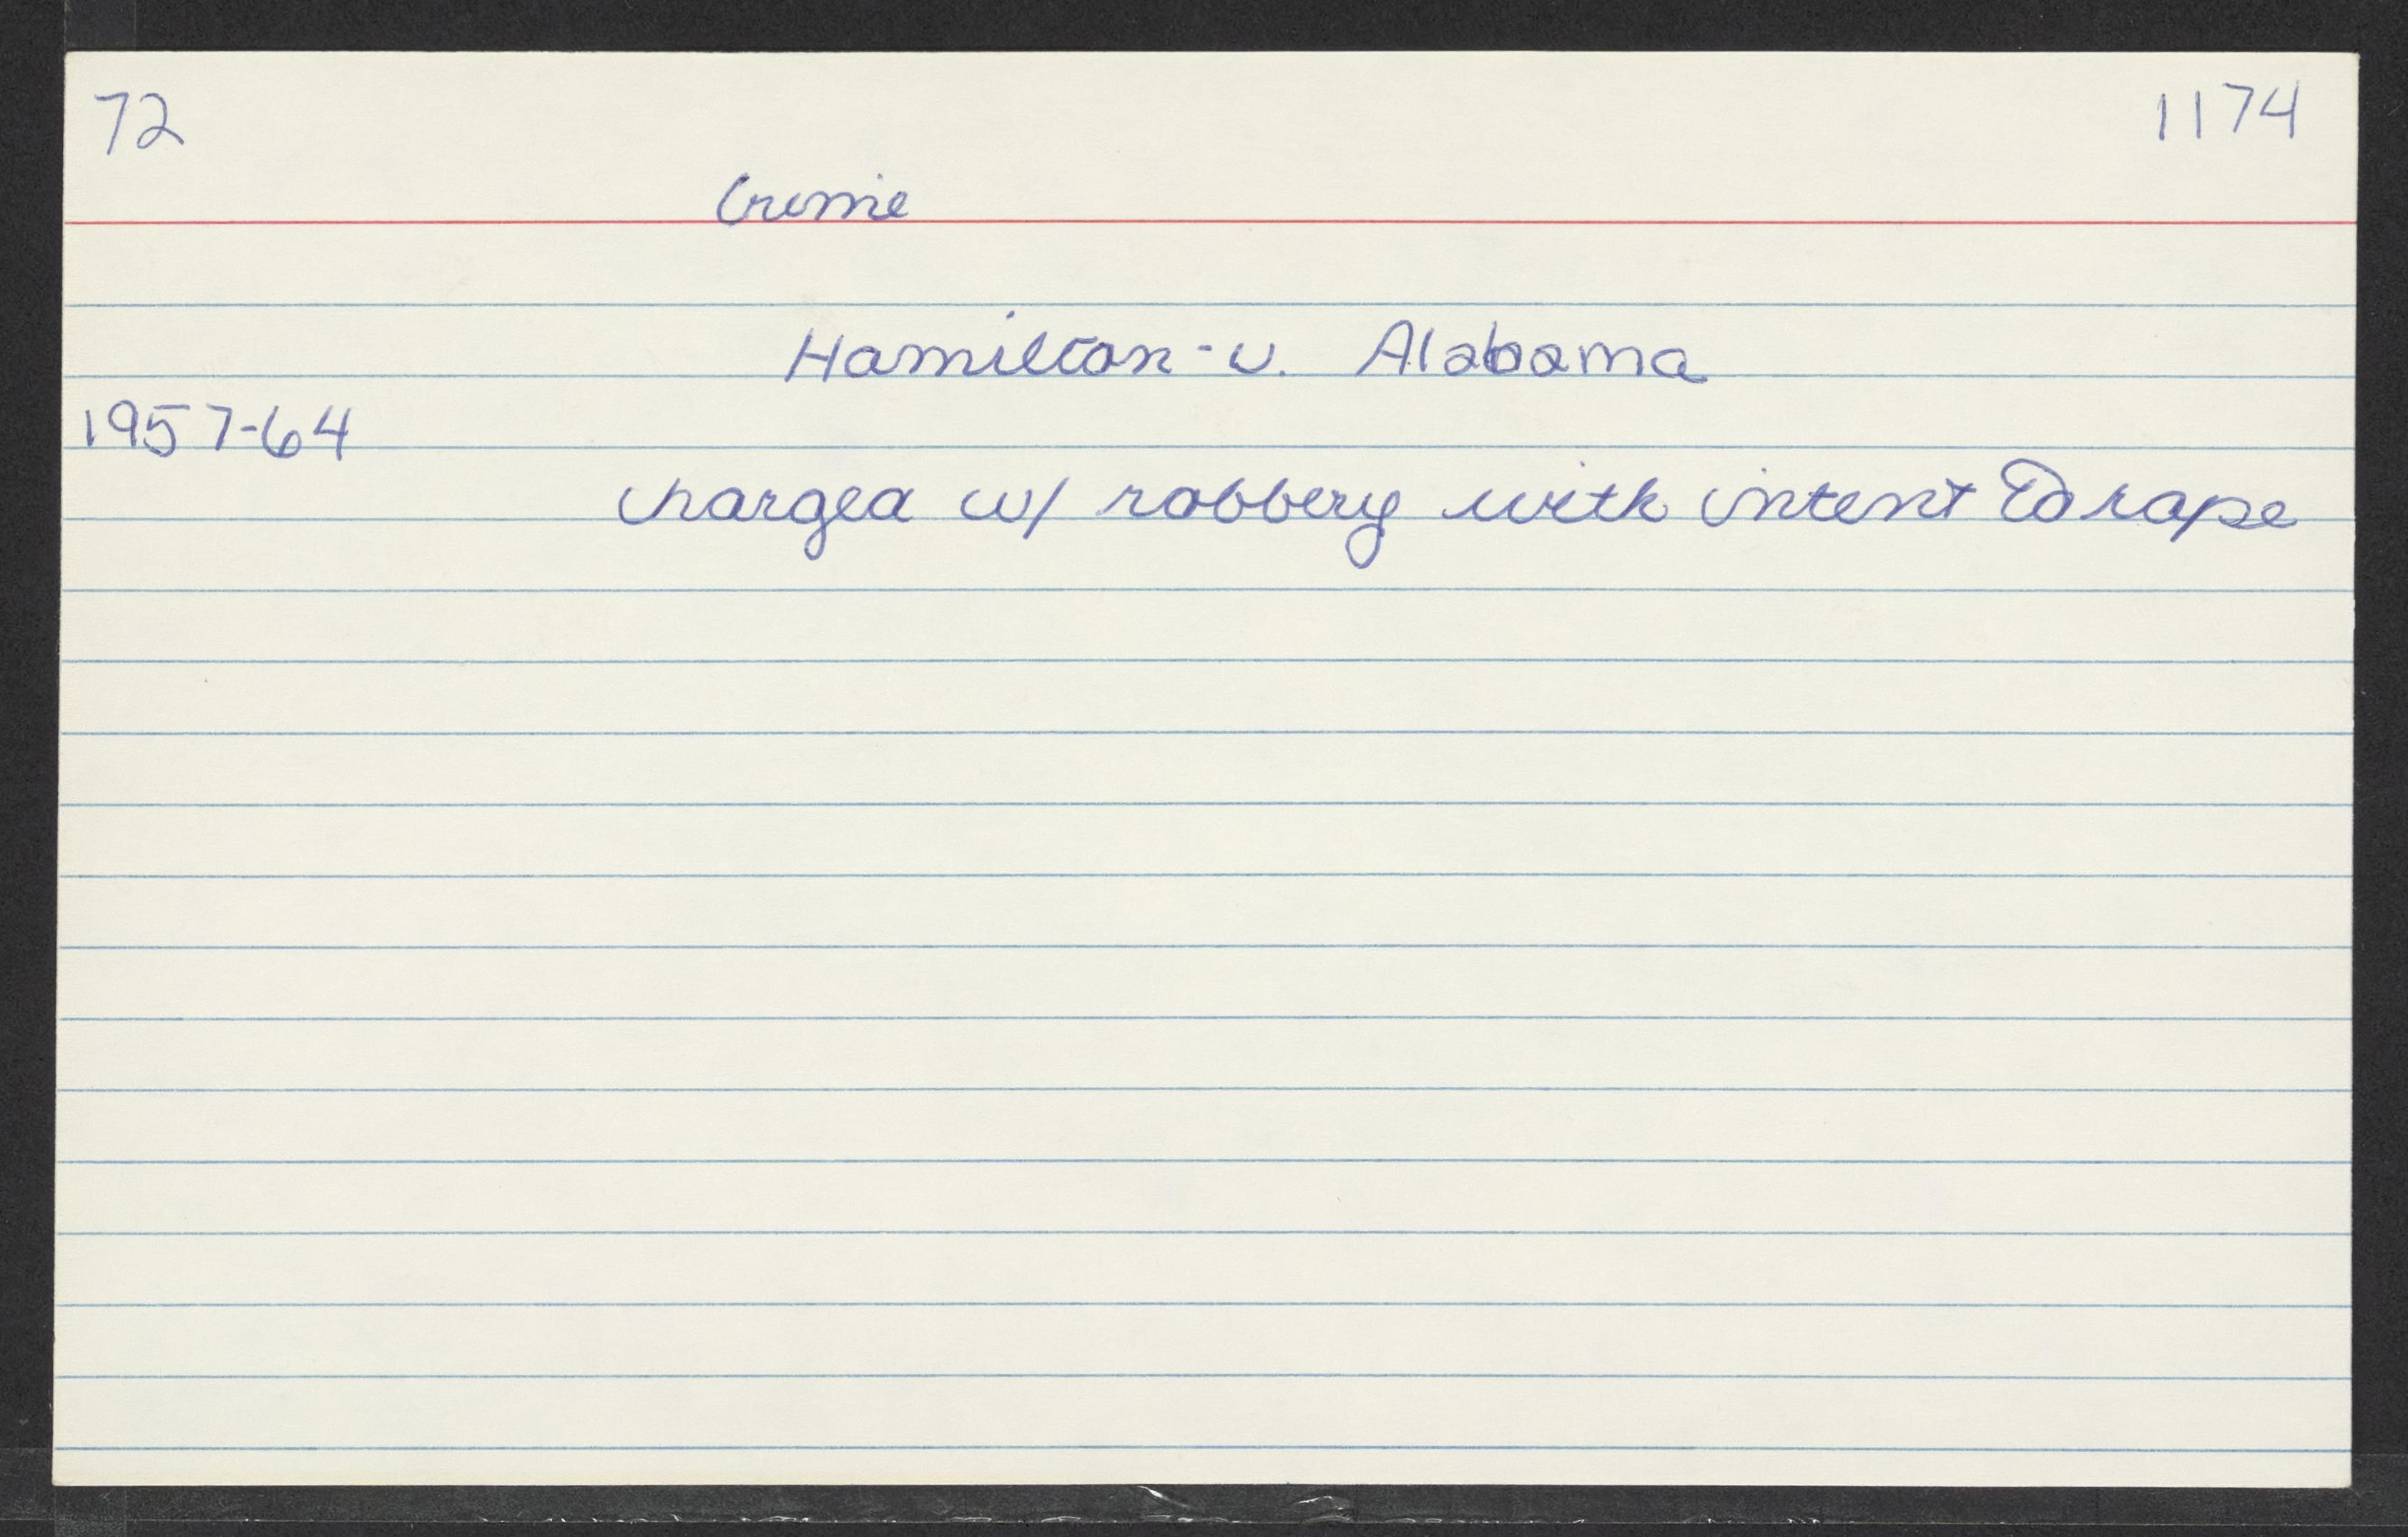 72 1174
Crime
Hamilton - v. Alabama
1957-64
charged w/ robbery with intent to rape